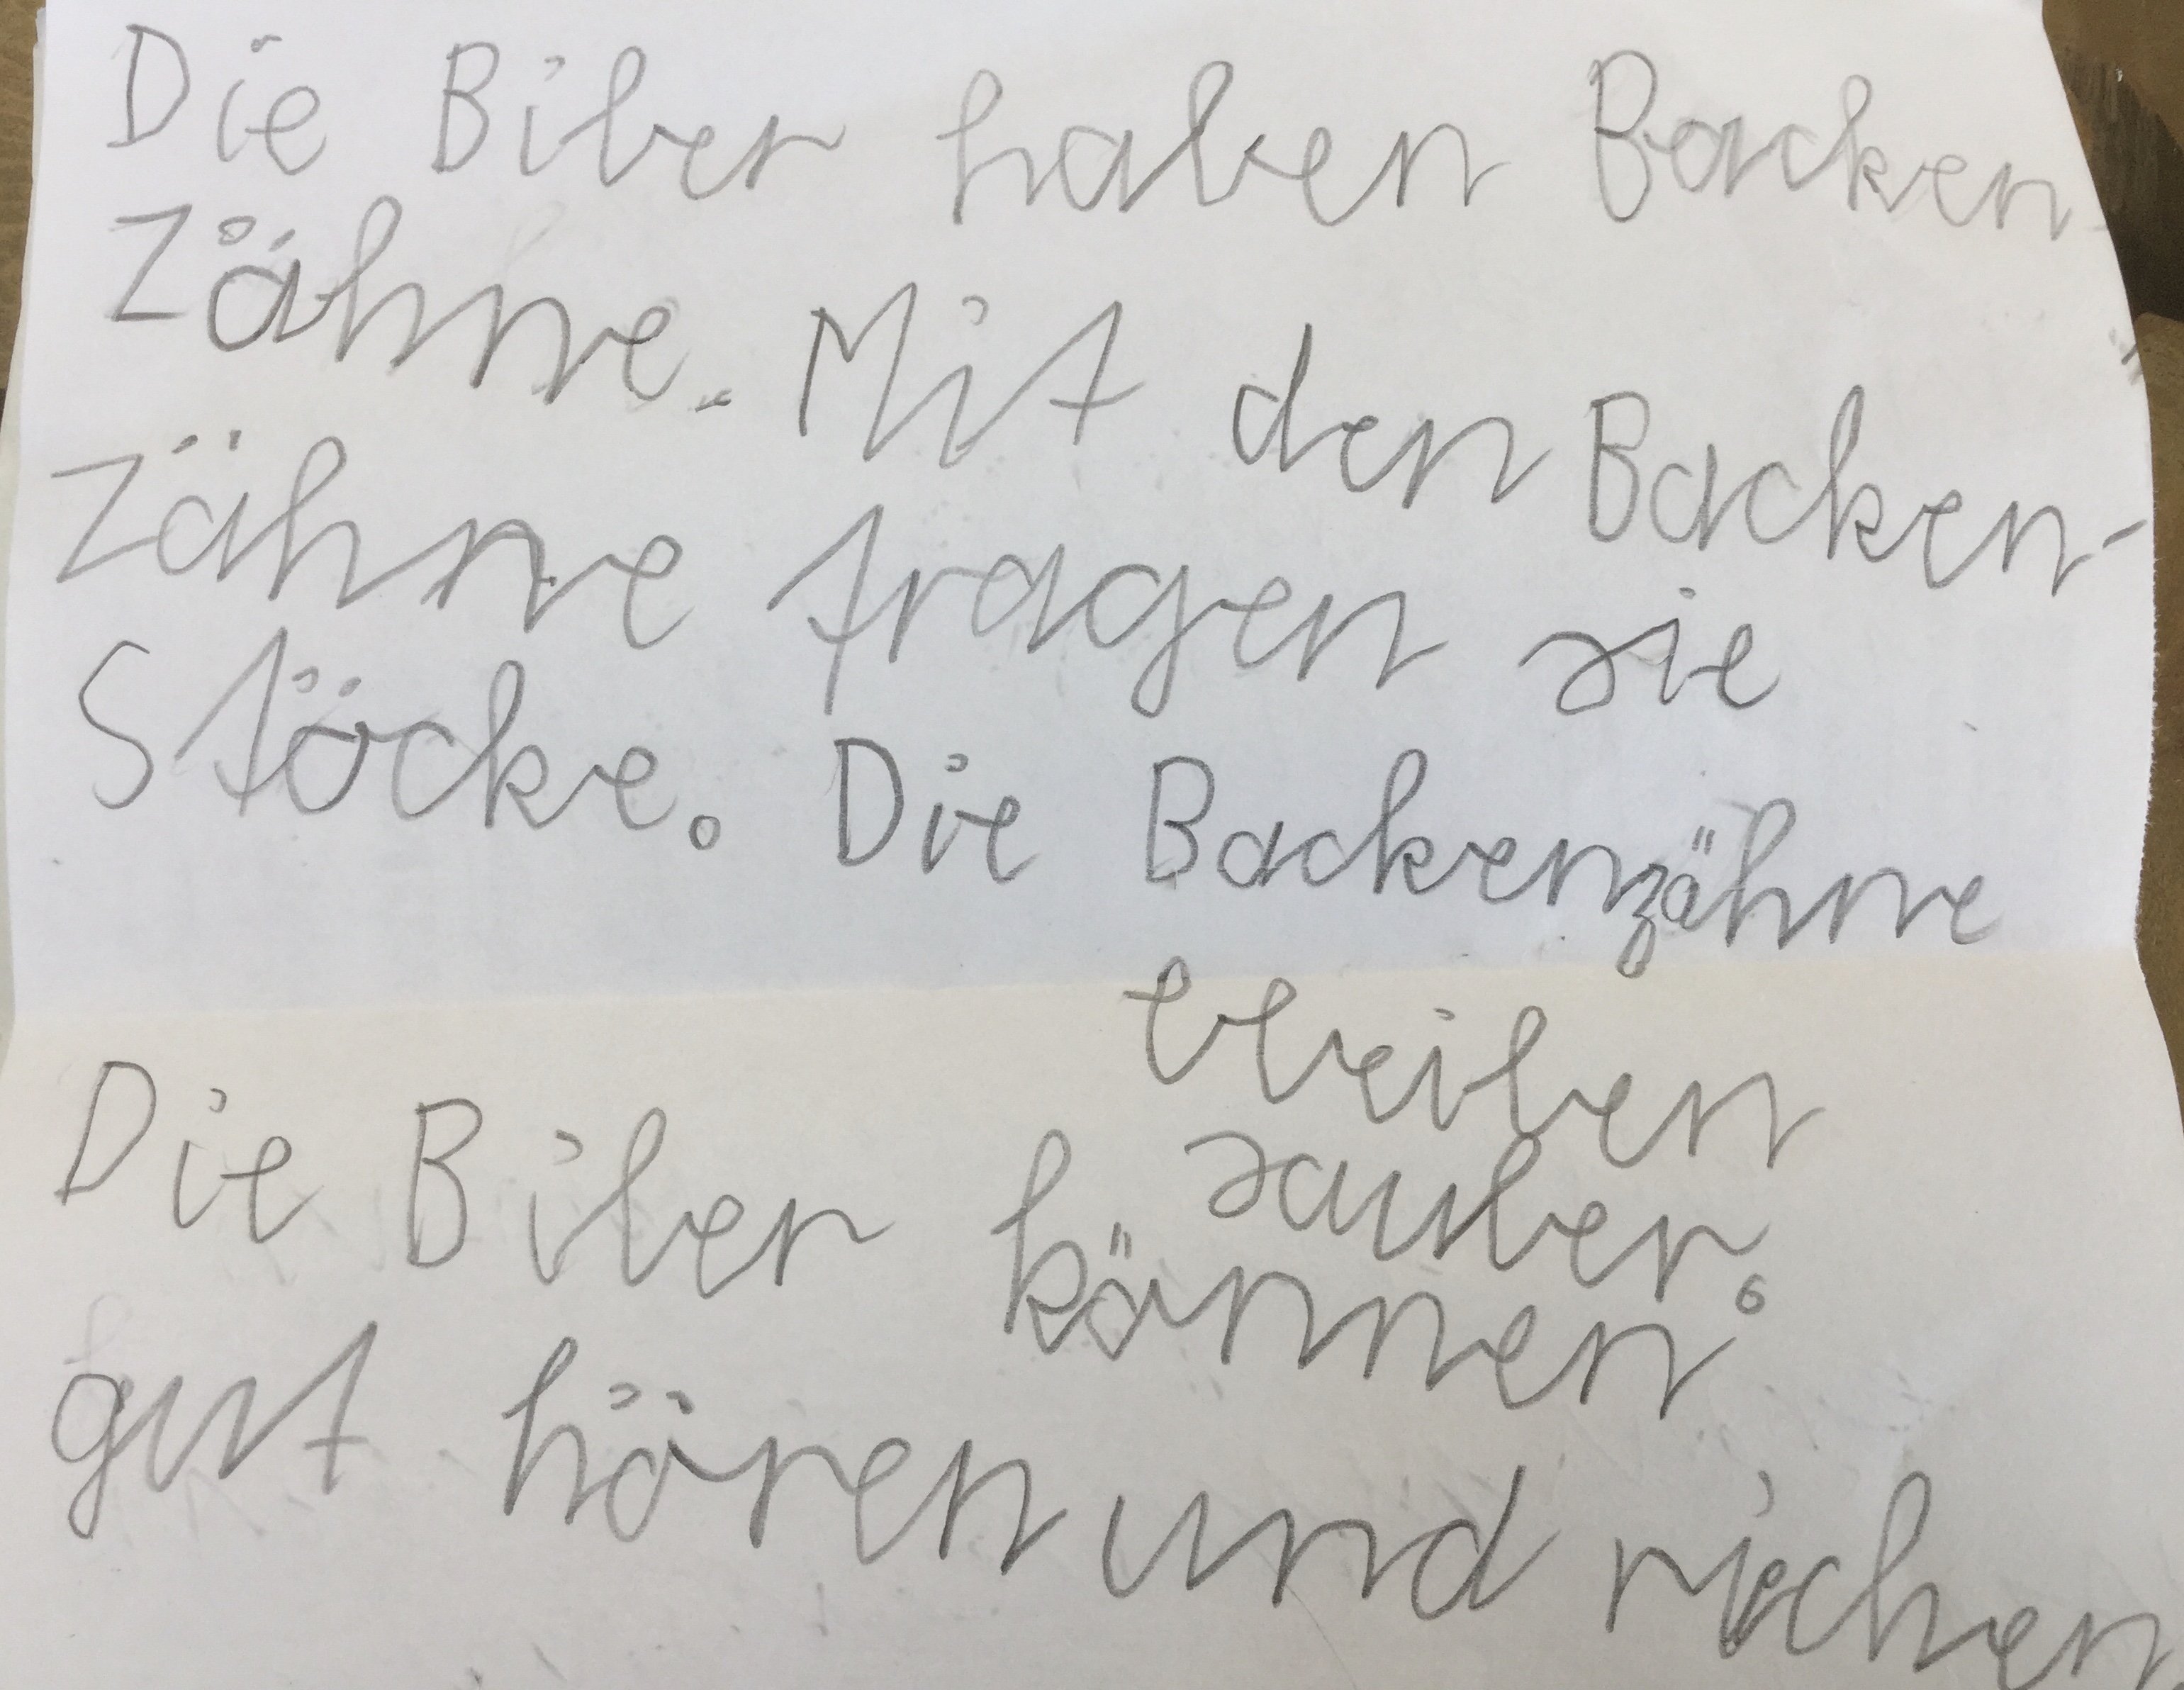 Die Biber haben Backen-
Zähne. Mit den Backen-
Zähne tragen sie
Stöcke. Die Backenzähne
bleiben
sauber.
Die Biber können
gut hören und riechen